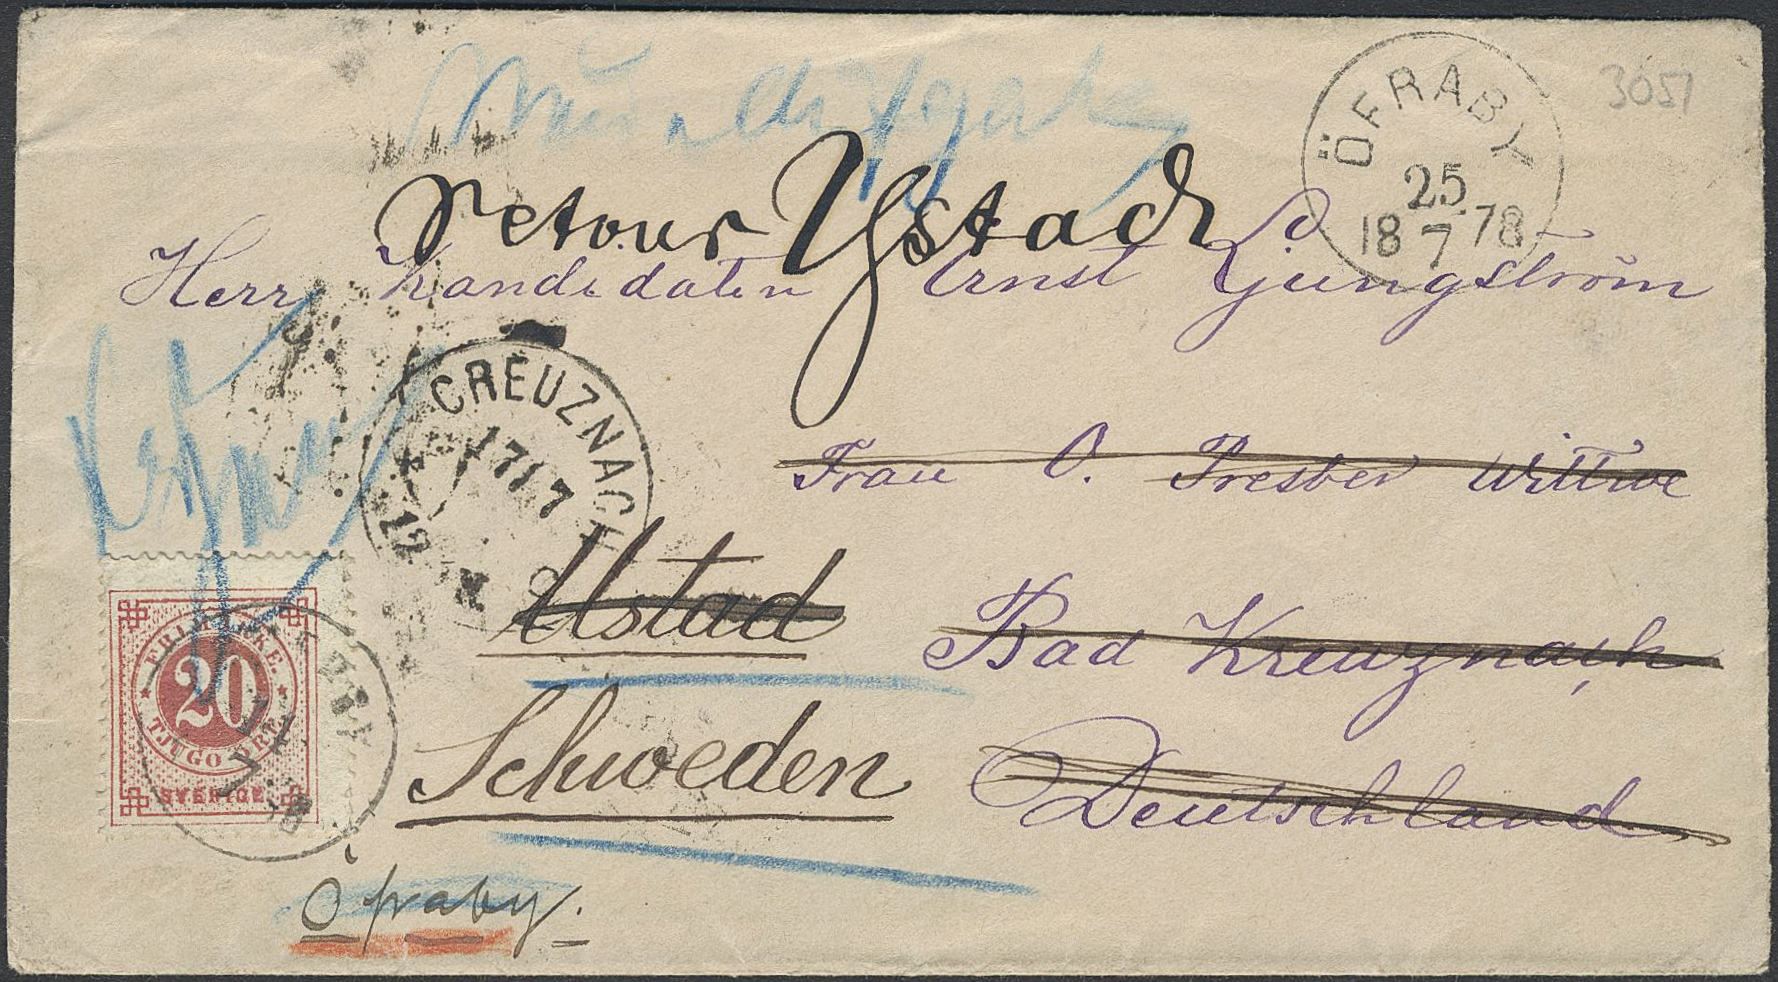 3051
ÖFRABY
25
18 7 78
Retour Ystad
Herr Kandidaten Ernst Ljungström
CREUZNACH
17 7
12
Frau O. Presber Wittwe
Ystad
Bad Kreuznach
Schweden
Deutschland
FRIMÄRKE.
20
TJUGO ÖRE
SVERIGE
Öfraby.